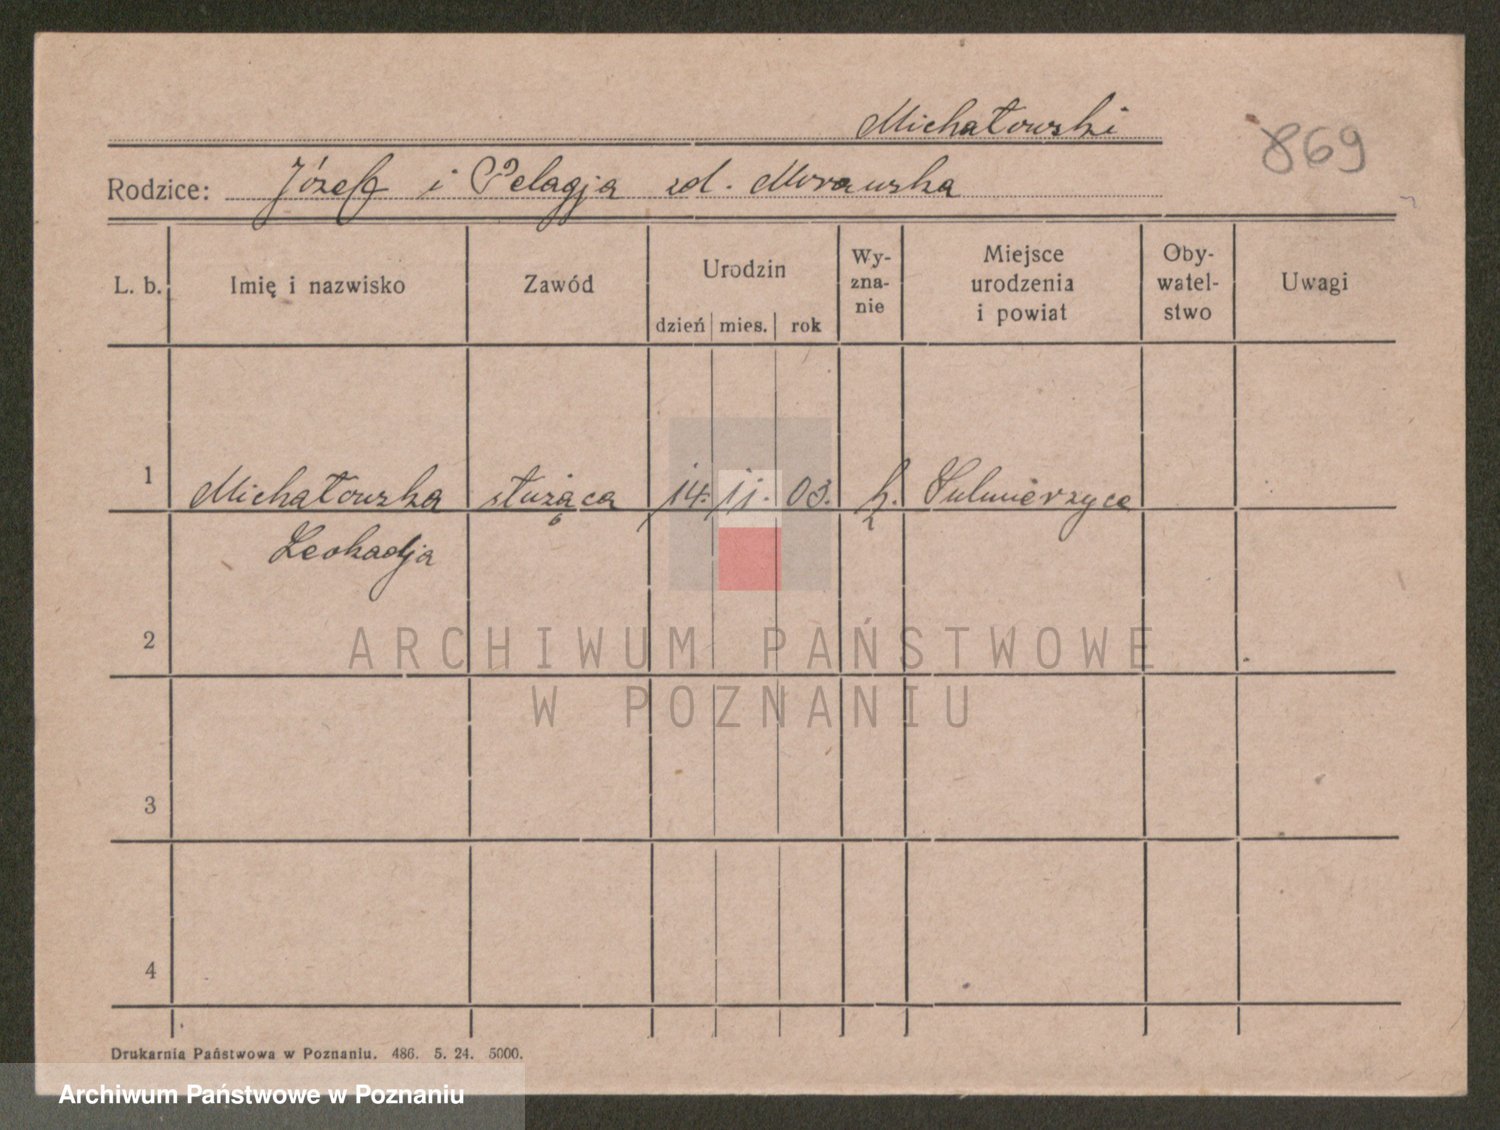 Michałowski
869
Rodzice: Józef i Pelagja zd. Morawska
L. b. Imię i nazwisko Zawód Urodzin dzień mies. rok Wy-zna-nie Miejsce urodzenia i powiat Oby-watel-stwo Uwagi
1 Michałowska służąca 14. 11. 03. k. Sulmierzyce
Leokadja
2
3
4
Drukarnia Państwowa w Poznaniu. 486. 5. 24. 5000.
ARCHIWUM PAŃSTWOWE
W POZNANIU
Archiwum Państwowe w Poznaniu